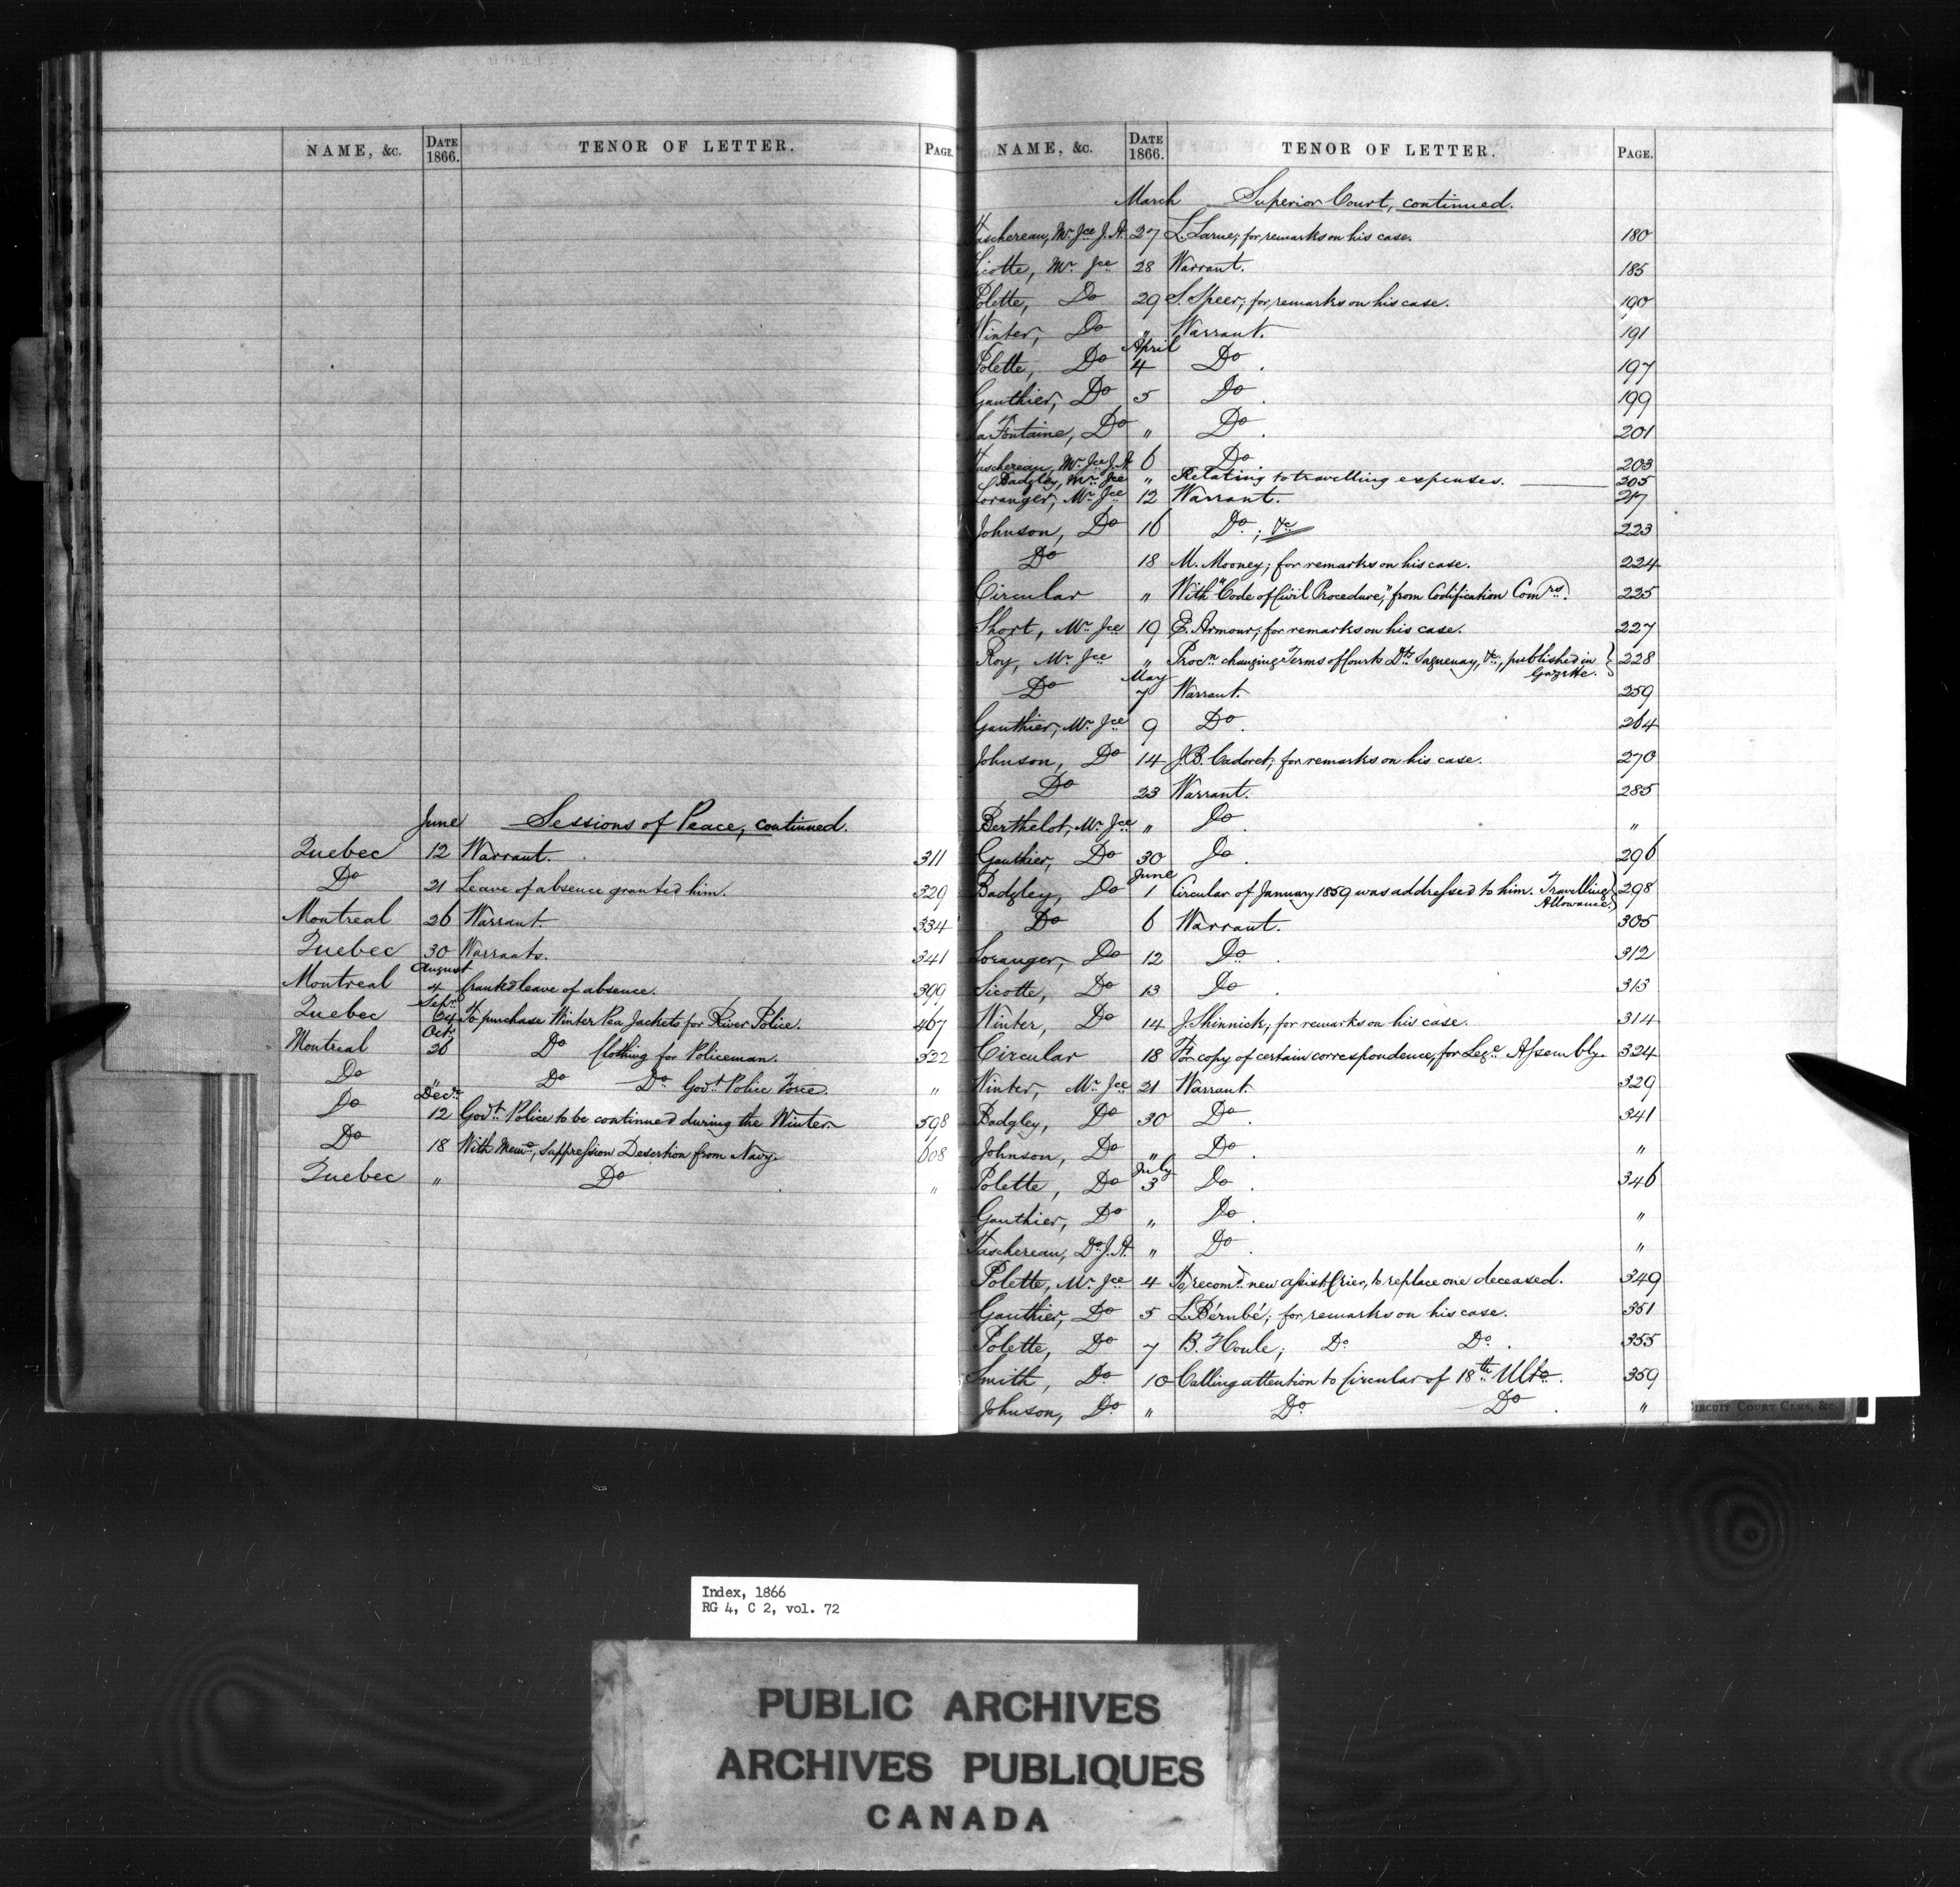 NAME, &c. DATE 1866. TENOR OF LETTER. PAGE.
June Sessions of Peace, continued.
Quebec 12 Warrant. 311
Do 21 Leave of absence granted him. 329
Montreal 26 Warrant. 334
Quebec 30 Warrants. 341
August
Montreal 4 Granted leave of absence. 399
Sepr
Quebec 24 To purchase Winter Pea Jackets for River Police. 467
Octr
Montreal 26 Do Clothing for Policeman. 522
Do " Do Do Govt Police Force. "
Decr
Do 12 Govt Police to be continued during the Winter. 598
Do 18 With Memo, Suppression Desertion from Navy. 608
Quebec " Do "
NAME, &c. DATE 1866. TENOR OF LETTER. PAGE.
March Superior Court, continued.
Taschereau, Mr Jce J.A. 27 L. Larue; for remarks on his case. 180
Sicotte, Mr Jce 28 Warrant. 185
Polette, Do 29 S. Speer; for remarks on his case. 190
Winter, Do " Warrant. 191
April
Polette, Do 4 Do. 197
Gauthier, Do 5 Do. 199
LaFontaine, Do " Do. 201
Taschereau, Mr Jce J.A 6 Do. 203
Badgley, Mr Jce " Relating to travelling expenses. 205
Loranger, Mr Jce 12 Warrant. 217
Johnson, Do 16 Do; &c 223
Do 18 M. Mooney; for remarks on his case. 224
Circular " With "Code of Civil Procedure," from Codification Comrs. 225
Short, Mr Jce 19 E. Armour; for remarks on his case. 227
Roy, Mr Jce " Procn changing Terms of Courts Dts Saguenay, &c, published in Gazette. 228
May
Do 7 Warrant. 259
Gauthier, Mr Jce 9 Do. 264
Johnson, Do 14 J.B. Cadoret; for remarks on his case. 270
Do 23 Warrant. 285
Berthelot, Mr Jce " Do. "
Gauthier, Do 30 Do. 296
June
Badgley, Do 1 Circular of January 1859 was addressed to him. Travelling Allowance. 298
Do 6 Warrant. 305
Loranger, Do 12 Do. 312
Sicotte, Do 13 Do. 313
Winter, Do 14 J. Shinnick; for remarks on his case. 314
Circular 18 For copy of certain correspondence, for Lege Assembly. 324
Winter, Mr Jce 21 Warrant. 329
Badgley, Do 30 Do. 341
Johnson, Do " Do. "
July
Polette, Do 3 Do. 346
Gauthier, Do " Do. "
Taschereau, Do J.A. " Do. "
Polette, Mr Jce 4 To recomd new assist Crier, to replace one deceased. 349
Gauthier, Do 5 L. Bérubé; for remarks on his case. 351
Polette, Do 7 B. Houle; Do Do. 355
Smith, Do 10 Calling attention to Circular of 18th Ulto. 359
Johnson, Do " Do Do. "
CIRCUIT COURT CLKS, &c.
Index, 1866
RG 4, C 2, vol. 72
PUBLIC ARCHIVES
ARCHIVES PUBLIQUES
CANADA